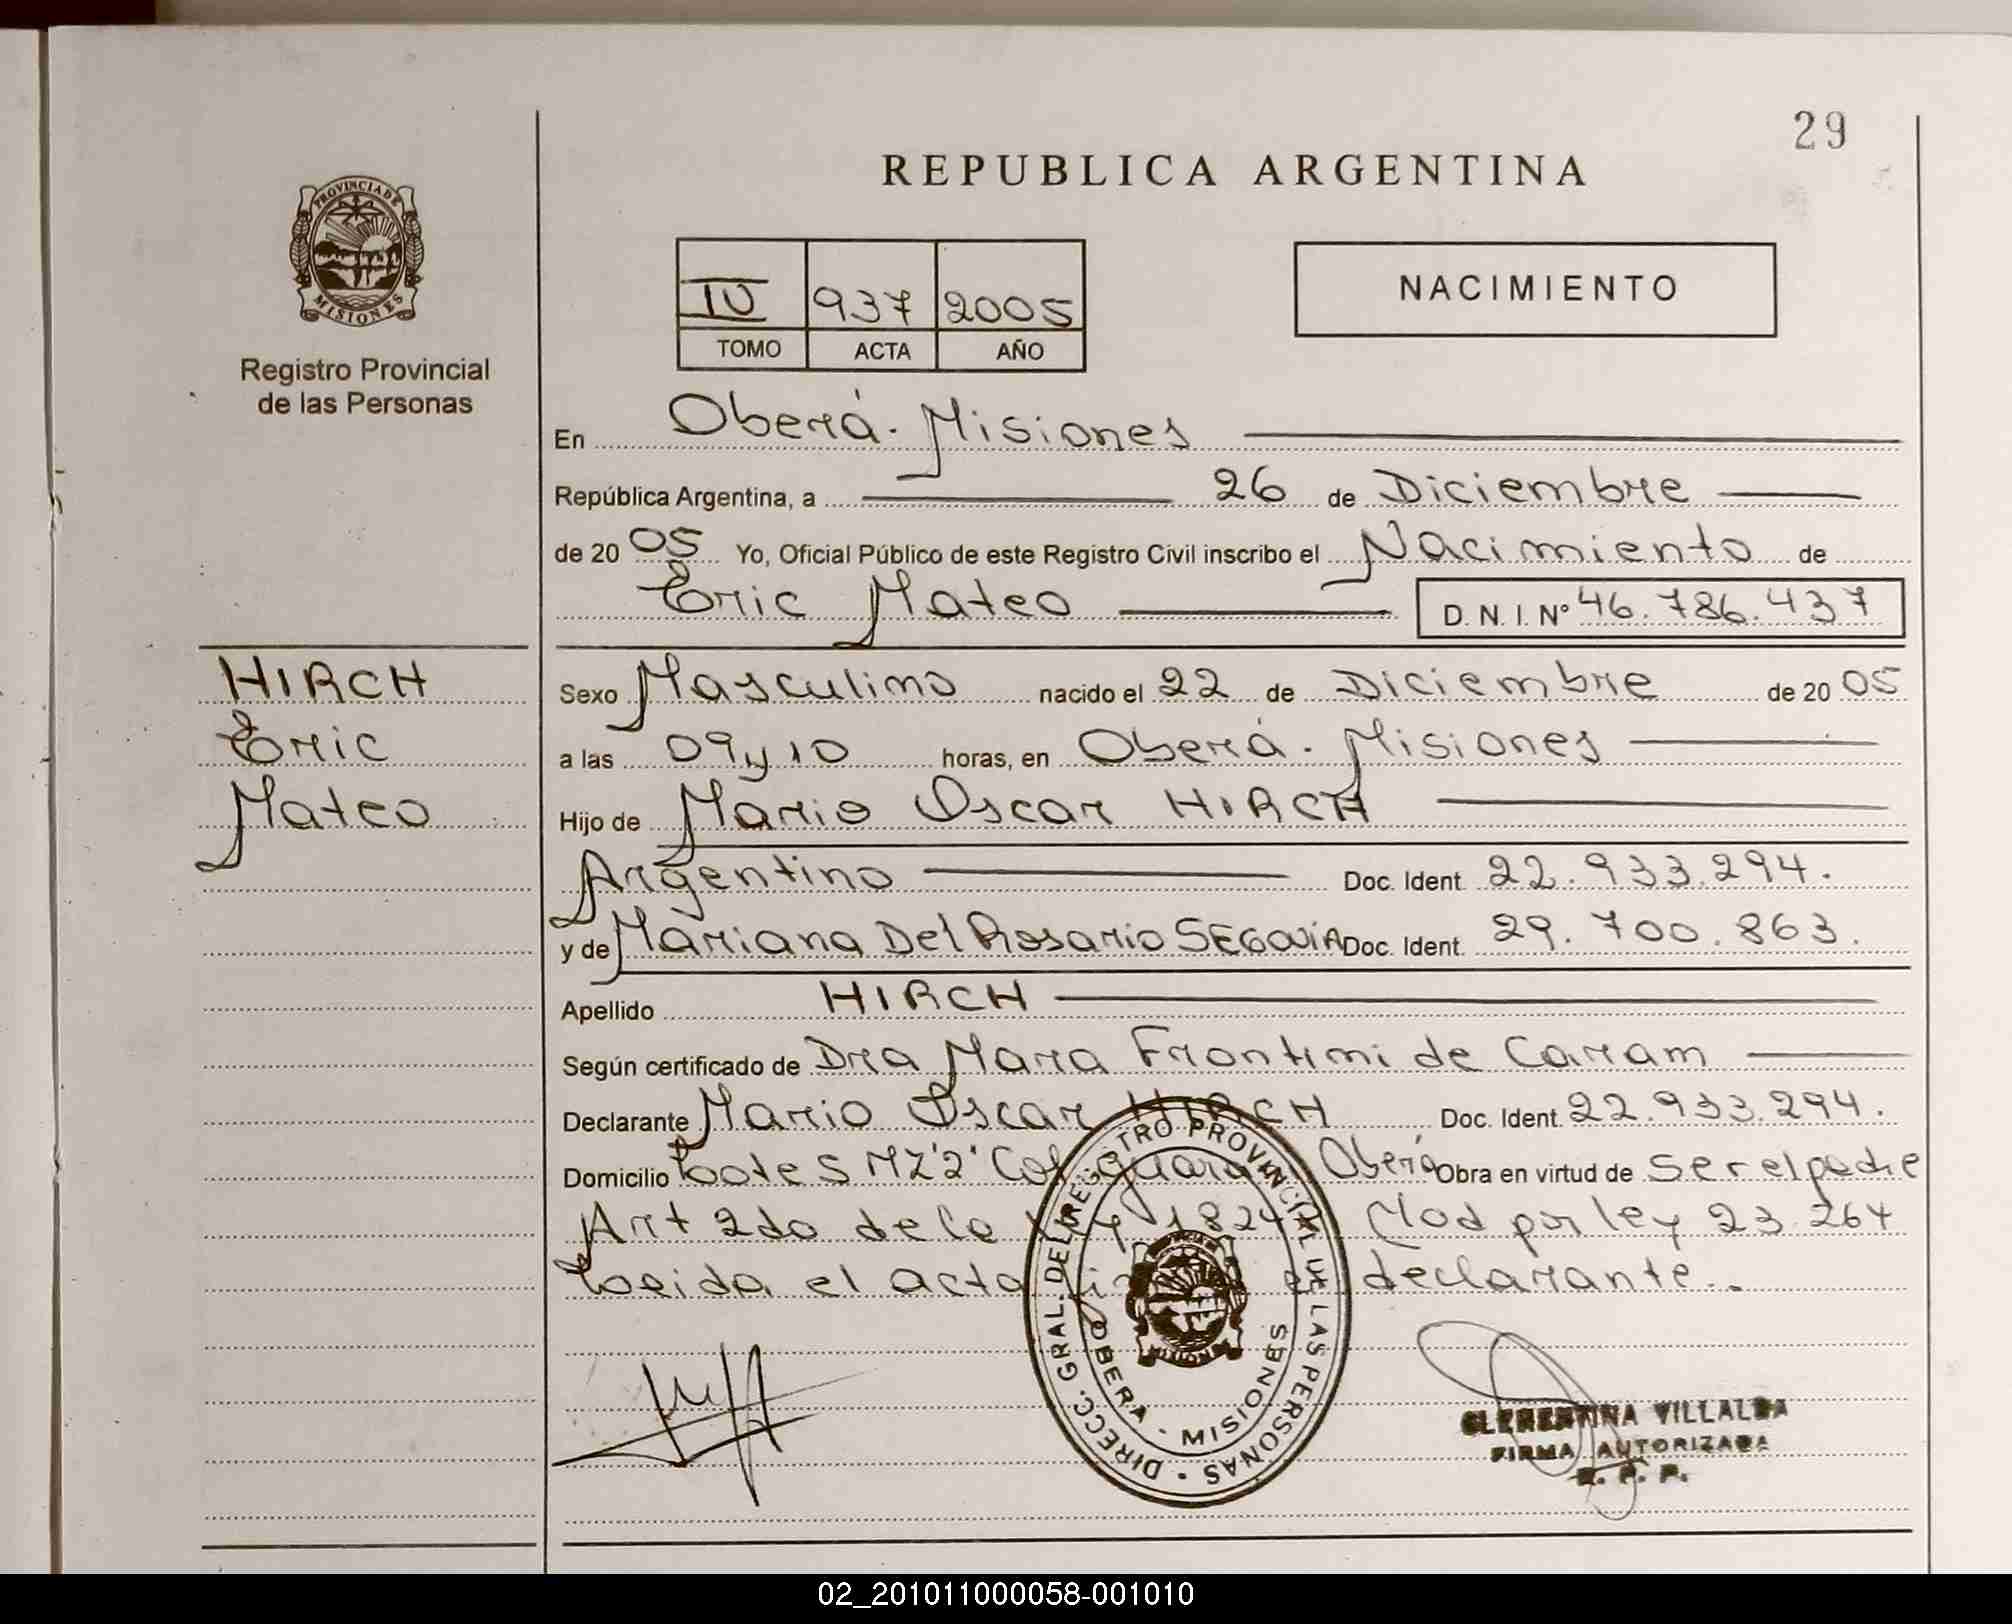 29
REPUBLICA ARGENTINA
PROVINCIA DE
MISIONES
Registro Provincial
de las Personas
IV 937 2005
TOMO ACTA AÑO
NACIMIENTO
En Oberá - Misiones
República Argentina, a 26 de Diciembre
de 20 05 Yo, Oficial Público de este Registro Civil inscribo el Nacimiento de
Eric Mateo D. N. I. Nº 46.786.437
HIRCH
Eric
Mateo
Sexo Masculino nacido el 22 de Diciembre de 20 05
a las 09 y 10 horas, en Oberá - Misiones
Hijo de Mario Oscar HIRCH
Argentino Doc. Ident. 22.933.294.
y de Mariana Del Rosario SEGOVIA Doc. Ident. 29.700.863.
Apellido HIRCH
Según certificado de Dra Mara Frontini de Caram
Declarante Mario Oscar HIRCH Doc. Ident. 22.933.294.
Domicilio Lote 5 MZ "2" Col Guarani Oberá Obra en virtud de Ser el padre
Art 2do de la Ley Mod por ley 23.264
Leida el acta el declarante.
DIRECC. GRAL. DEL REGISTRO PROVINCIAL DE LAS PERSONAS
OBERA - MISIONES
CLEMENTINA VILLALBA
FIRMA AUTORIZADA
R. P. P.
02_201011000058-001010